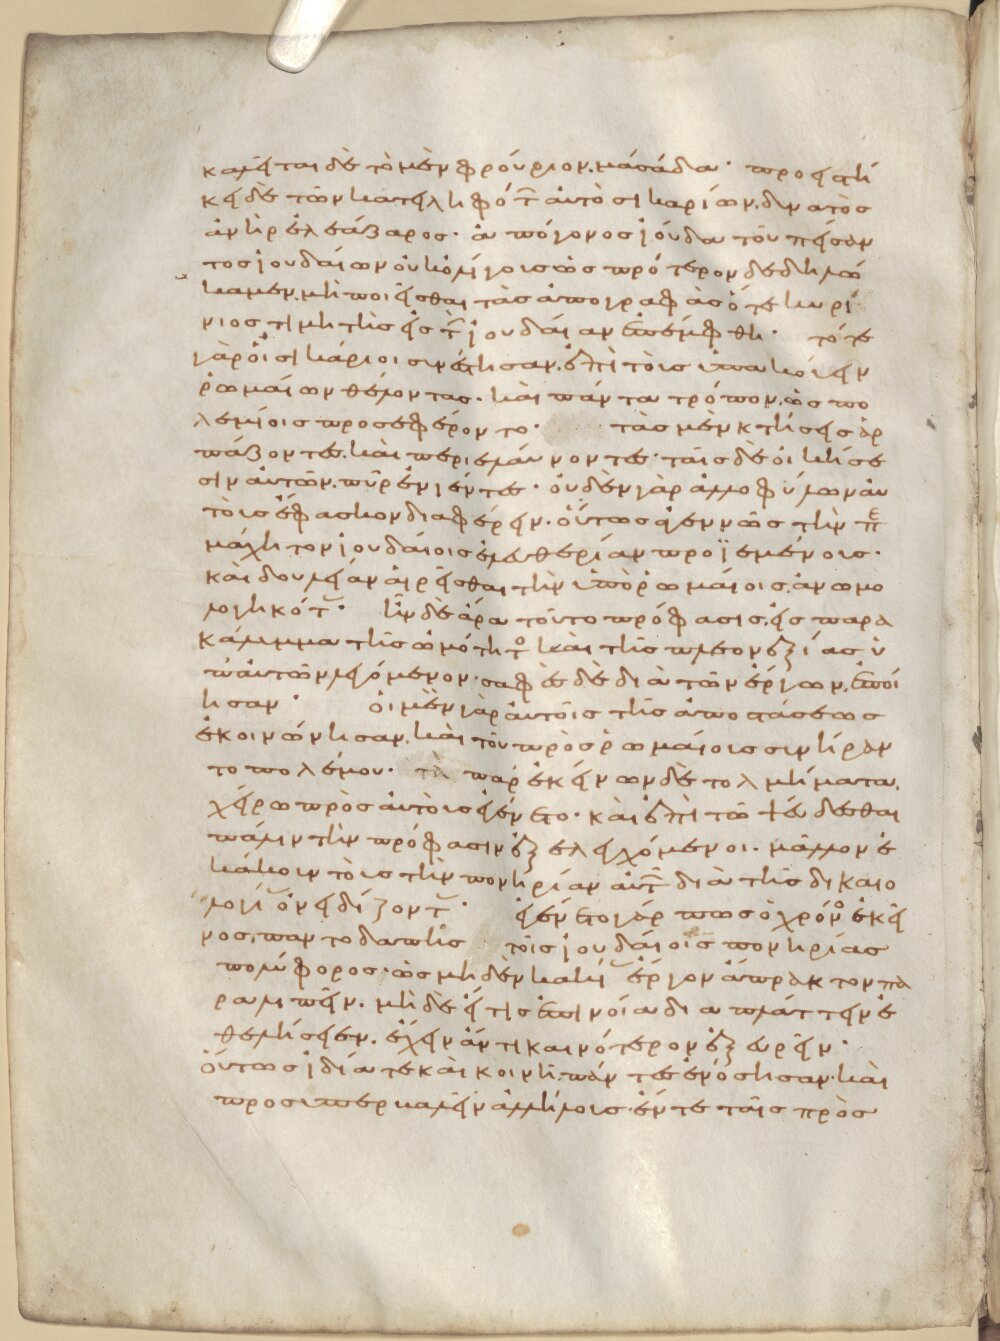 καλεῖται δὲ τὸ μὲν φρούριον. μασάδα· προειστή
κει δὲ τῶν κατειληφότ αὐτὸ σικαρίων. δυνατὸς
ἀνὴρ ἐλεάζαρος· ἀπόγονος ἰούδα τοῦ πείσαν
τος ἰουδαίων οὐκ ὀλίγοις ὡς πρότερον δεδηλώ
καμεν. μὴ ποιεῖσθαι τὰς ἀπογραφὰς ὅτε κυρί
νιος τιμητὴς εἰς τ ἰουδαίαν ἐπέμφθη· τότε
γὰρ οἱ σικάριοι συνέστησαν. ἐπὶ τοὺς ὑπακούειν
ῥωμαίων θέλοντας· καὶ πάντα τρόπον. ὡς πο
λεμίοις προσεφέροντο· τὰς μὲν κτήσεις ἁρ
πάζοντες. καὶ περιελαύνοντες· ταῖς δὲ οἰκήσε
σιν αὐτῶν. πῦρ ἐνιέντες· οὐδὲν γὰρ ἀλλοφύλων αὐ
τοὺς ἔφασκον διαφέρειν. οὕτως ἀγεννῶς τὴν πε
μάχητον ἰουδαίοις ἐλευθερίαν προϊεμένους·
καὶ δουλείαν αἱρεῖσθαι τὴν ὑπὸ ῥωμαίοις. ἀνωμο
λογηκότ· ἦν δὲ ἄρα τοῦτο πρόφασις. εἰς παρα
κάλυμμα τῆς ὠμότητο καὶ τῆς πλεονεξίας ὑ
π' αὐτῶν λεγόμενον· σαφὲς δὲ διὰ τῶν ἔργων. ἐποί
ησαν· οἱ μὲν γὰρ αὐτοῖς τῆς ἀποστάσεως
ἐκοινώνησαν. καὶ τοῦ πρὸς ῥωμαίους συνήραν
το πολέμου· παρ' ἐκείνων δὲ τολμήματα.
χείρω πρὸς αὐτοὺς ἐγένετο· κἀπὶ τῶ ψεύδεσθαι
πάλιν τὴν πρόφασιν ἐξελεγχόμενοι. μᾶλλον ἐ
κάκουν τοὺς τὴν πονηρίαν αὐτ διὰ τῆς δικαιο
λογί ὀνειδίζοντ· ἐγένετο γάρ πως ὁ χρόνο ἐκεῖ
νος. παντοδαπῆς τοῖς ἰουδαίοις πονηρίας
πολύφορος· ὡς μηδὲν κακί ἔργον ἄπρακτον πα
ραλιπεῖν. μὴ δὲ εἴ τις ἐπινοία διαπλάττειν ἐ
θελήσειεν. ἔχειν ἄν τι καινότερον ἐξευρεῖν·
οὕτως ἰδία τε καὶ κοινῆ. πάντες ἐνόσησαν. καὶ
προσυπερβαλεῖν ἀλλήλους· ἔν τε ταῖς πρὸς